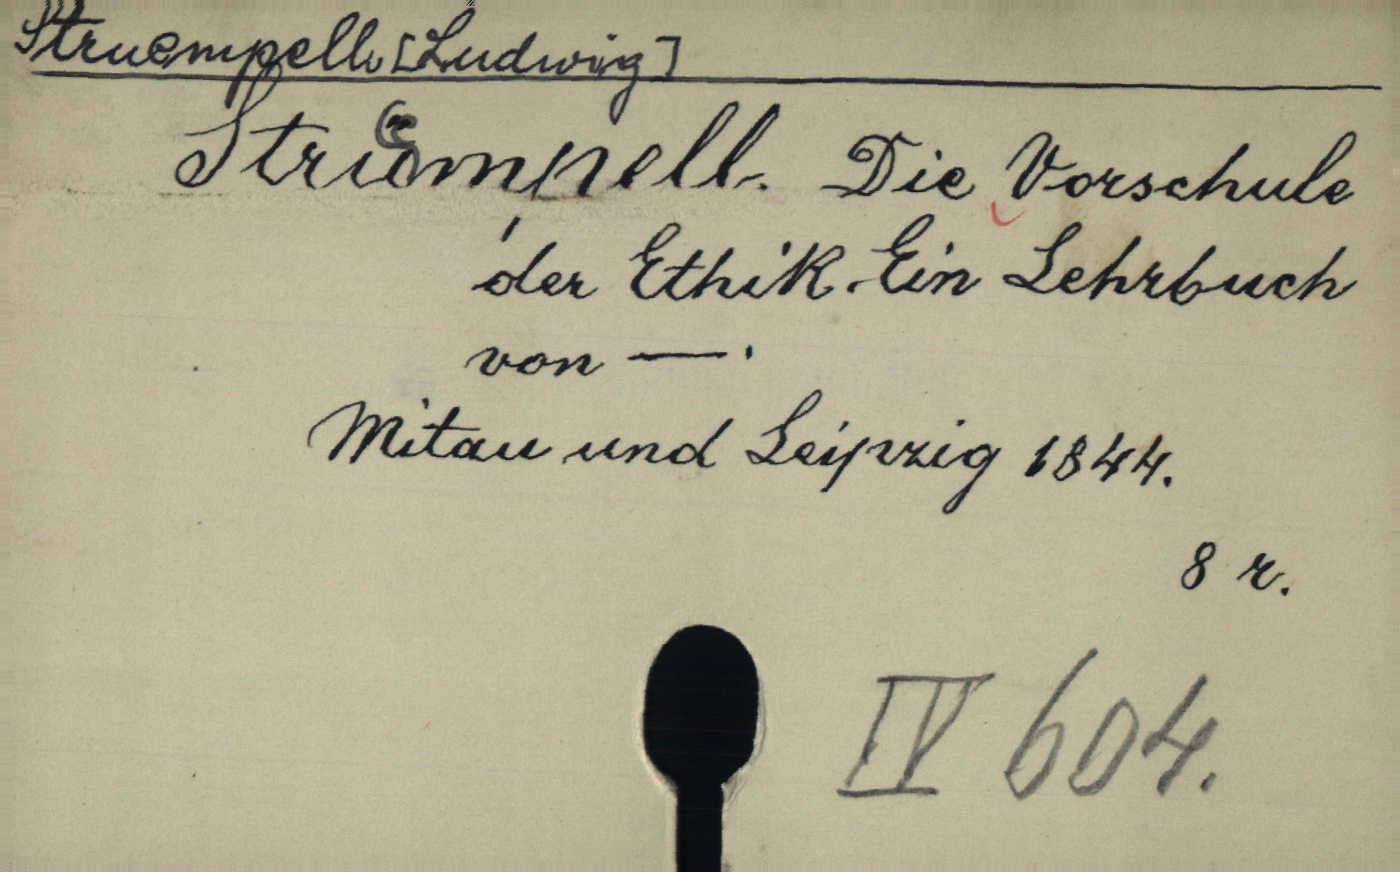 Struempell [Ludwig]
Strümpell. Die Vorschule
der Ethik. Ein Lehrbuch
von —.
Mitau und Leipzig 1844.
8 r.
IV 604.